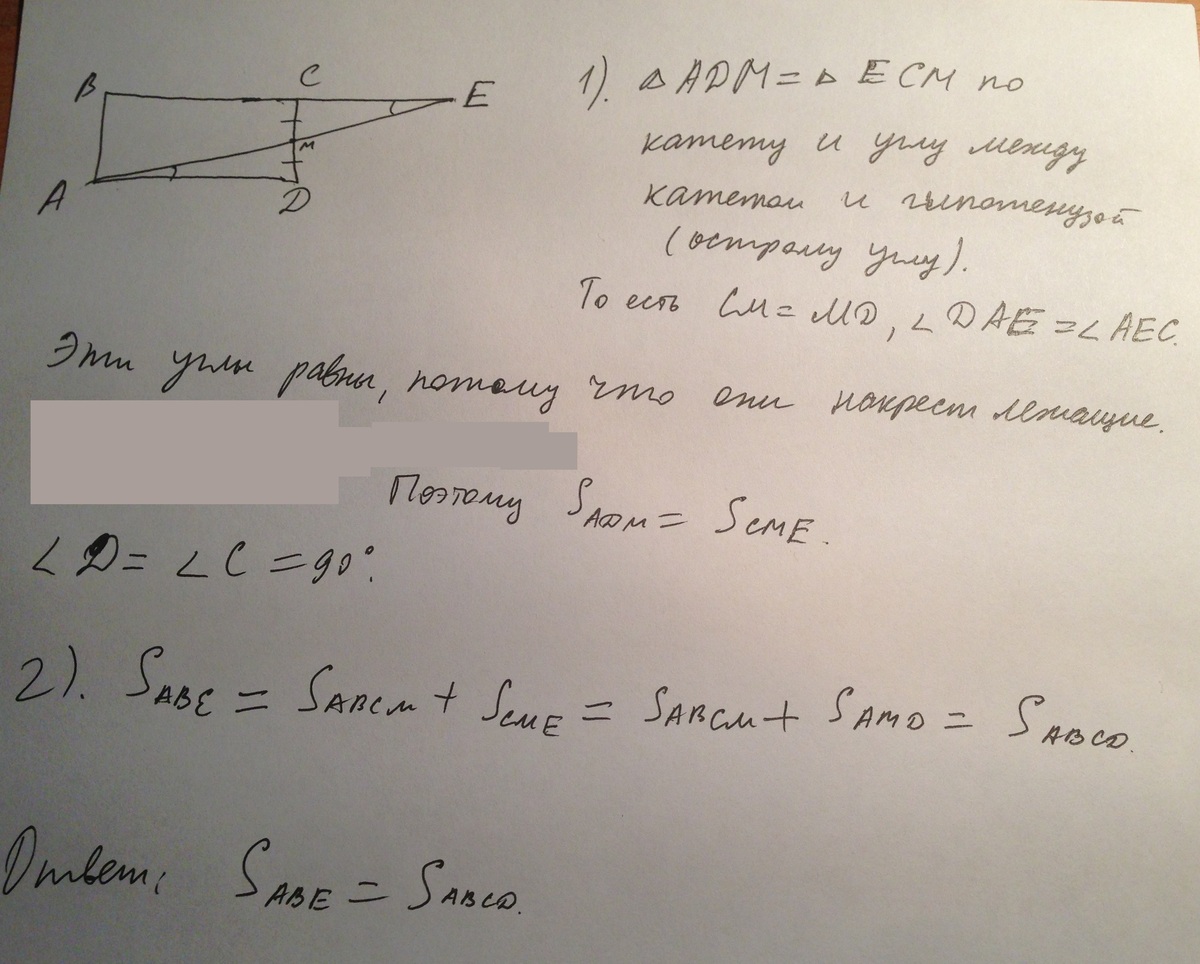 B C E
M
A D
1). ΔADM = Δ ECM по
катету и углу между
катетом и гипотенузой
(острому углу).
То есть CM = MD, ∠DAE = ∠AEC.
Эти углы равны, потому что они накрест лежащие.
Поэтому S_ADM = S_CME.
∠D = ∠C = 90°.
2). S_ABE = S_ABCM + S_CME = S_ABCM + S_AMD = S_ABCD.
Ответ: S_ABE = S_ABCD.